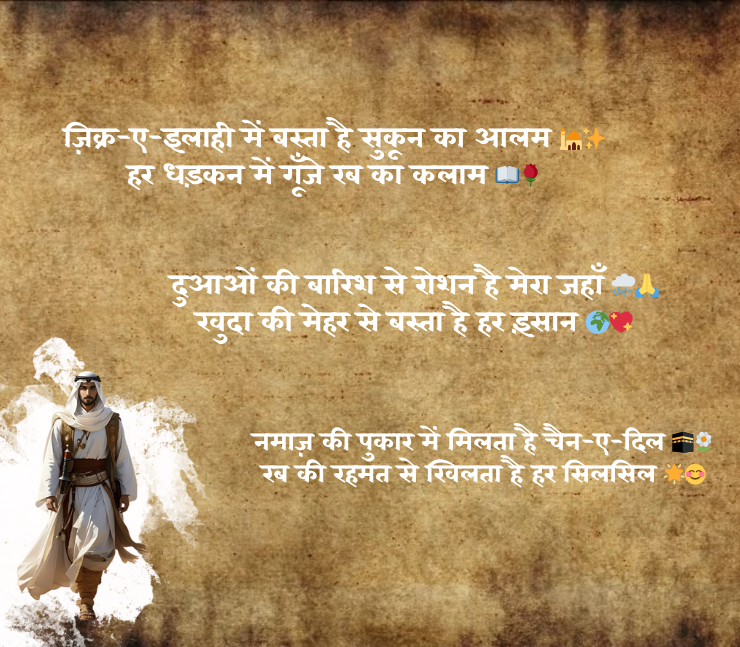 ज़िक्र-ए-इलाही में बस्ता है सुकून का आलम 🕌✨
हर धड़कन में गूँजे रब का कलाम 📖🌹
दुआओं की बारिश से रोशन है मेरा जहाँ 🌧️🙏
खुदा की मेहर से बस्ता है हर इंसान 🌍💖
नमाज़ की पुकार में मिलता है चैन-ए-दिल 🕋🌼
रब की रहमत से खिलता है हर सिलसिल 🌟😊